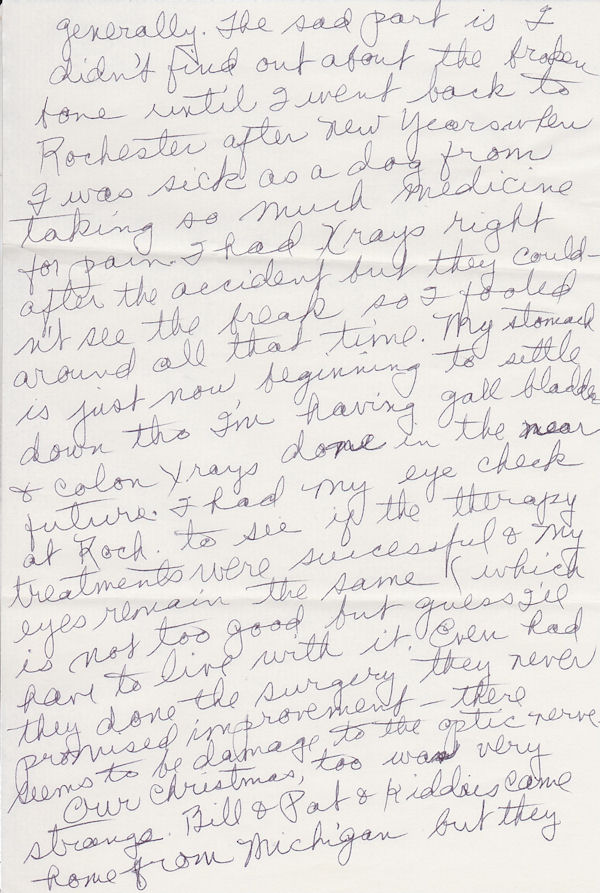 generally. The sad part is I
didn't find out about the broken
bone until I went back to
Rochester after New Years when
I was sick as a dog from
taking so much medicine
for pain. I had Xrays right
after the accident but they could-
n't see the break so I fooled
around all that time. My stomach
is just now beginning to settle
down tho I'm having gall bladder
& colon Xrays done in the near
future. I had my eye check
at Roch. to see if the therapy
treatments were successful & my
eyes remain the same (which
is not too good but guess I'll
have to live with it. Even had
they done the surgery they never
promised improvement - there
seems to be damage to the optic nerve.
Our Christmas, too was very
strange. Bill & Pat & kiddies came
home from Michigan but they